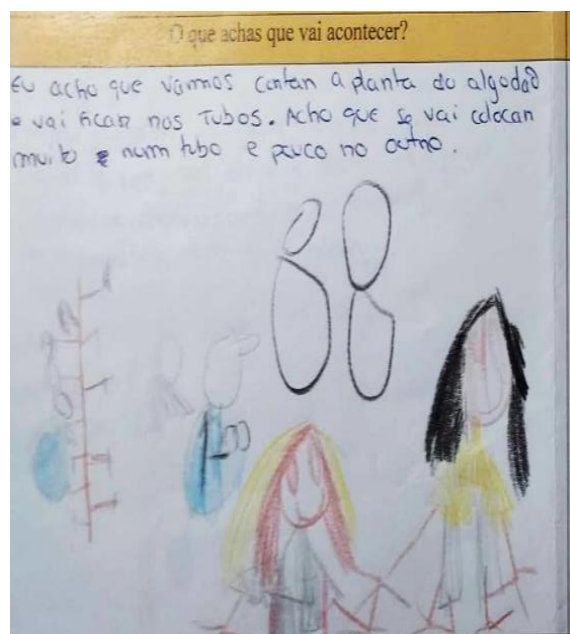 O que achas que vai acontecer?
Eu acho que vamos contar a planta do algodão
e vai ficar nos tubos. Acho que se vai colocar
muito e num tubo e pouco no outro.